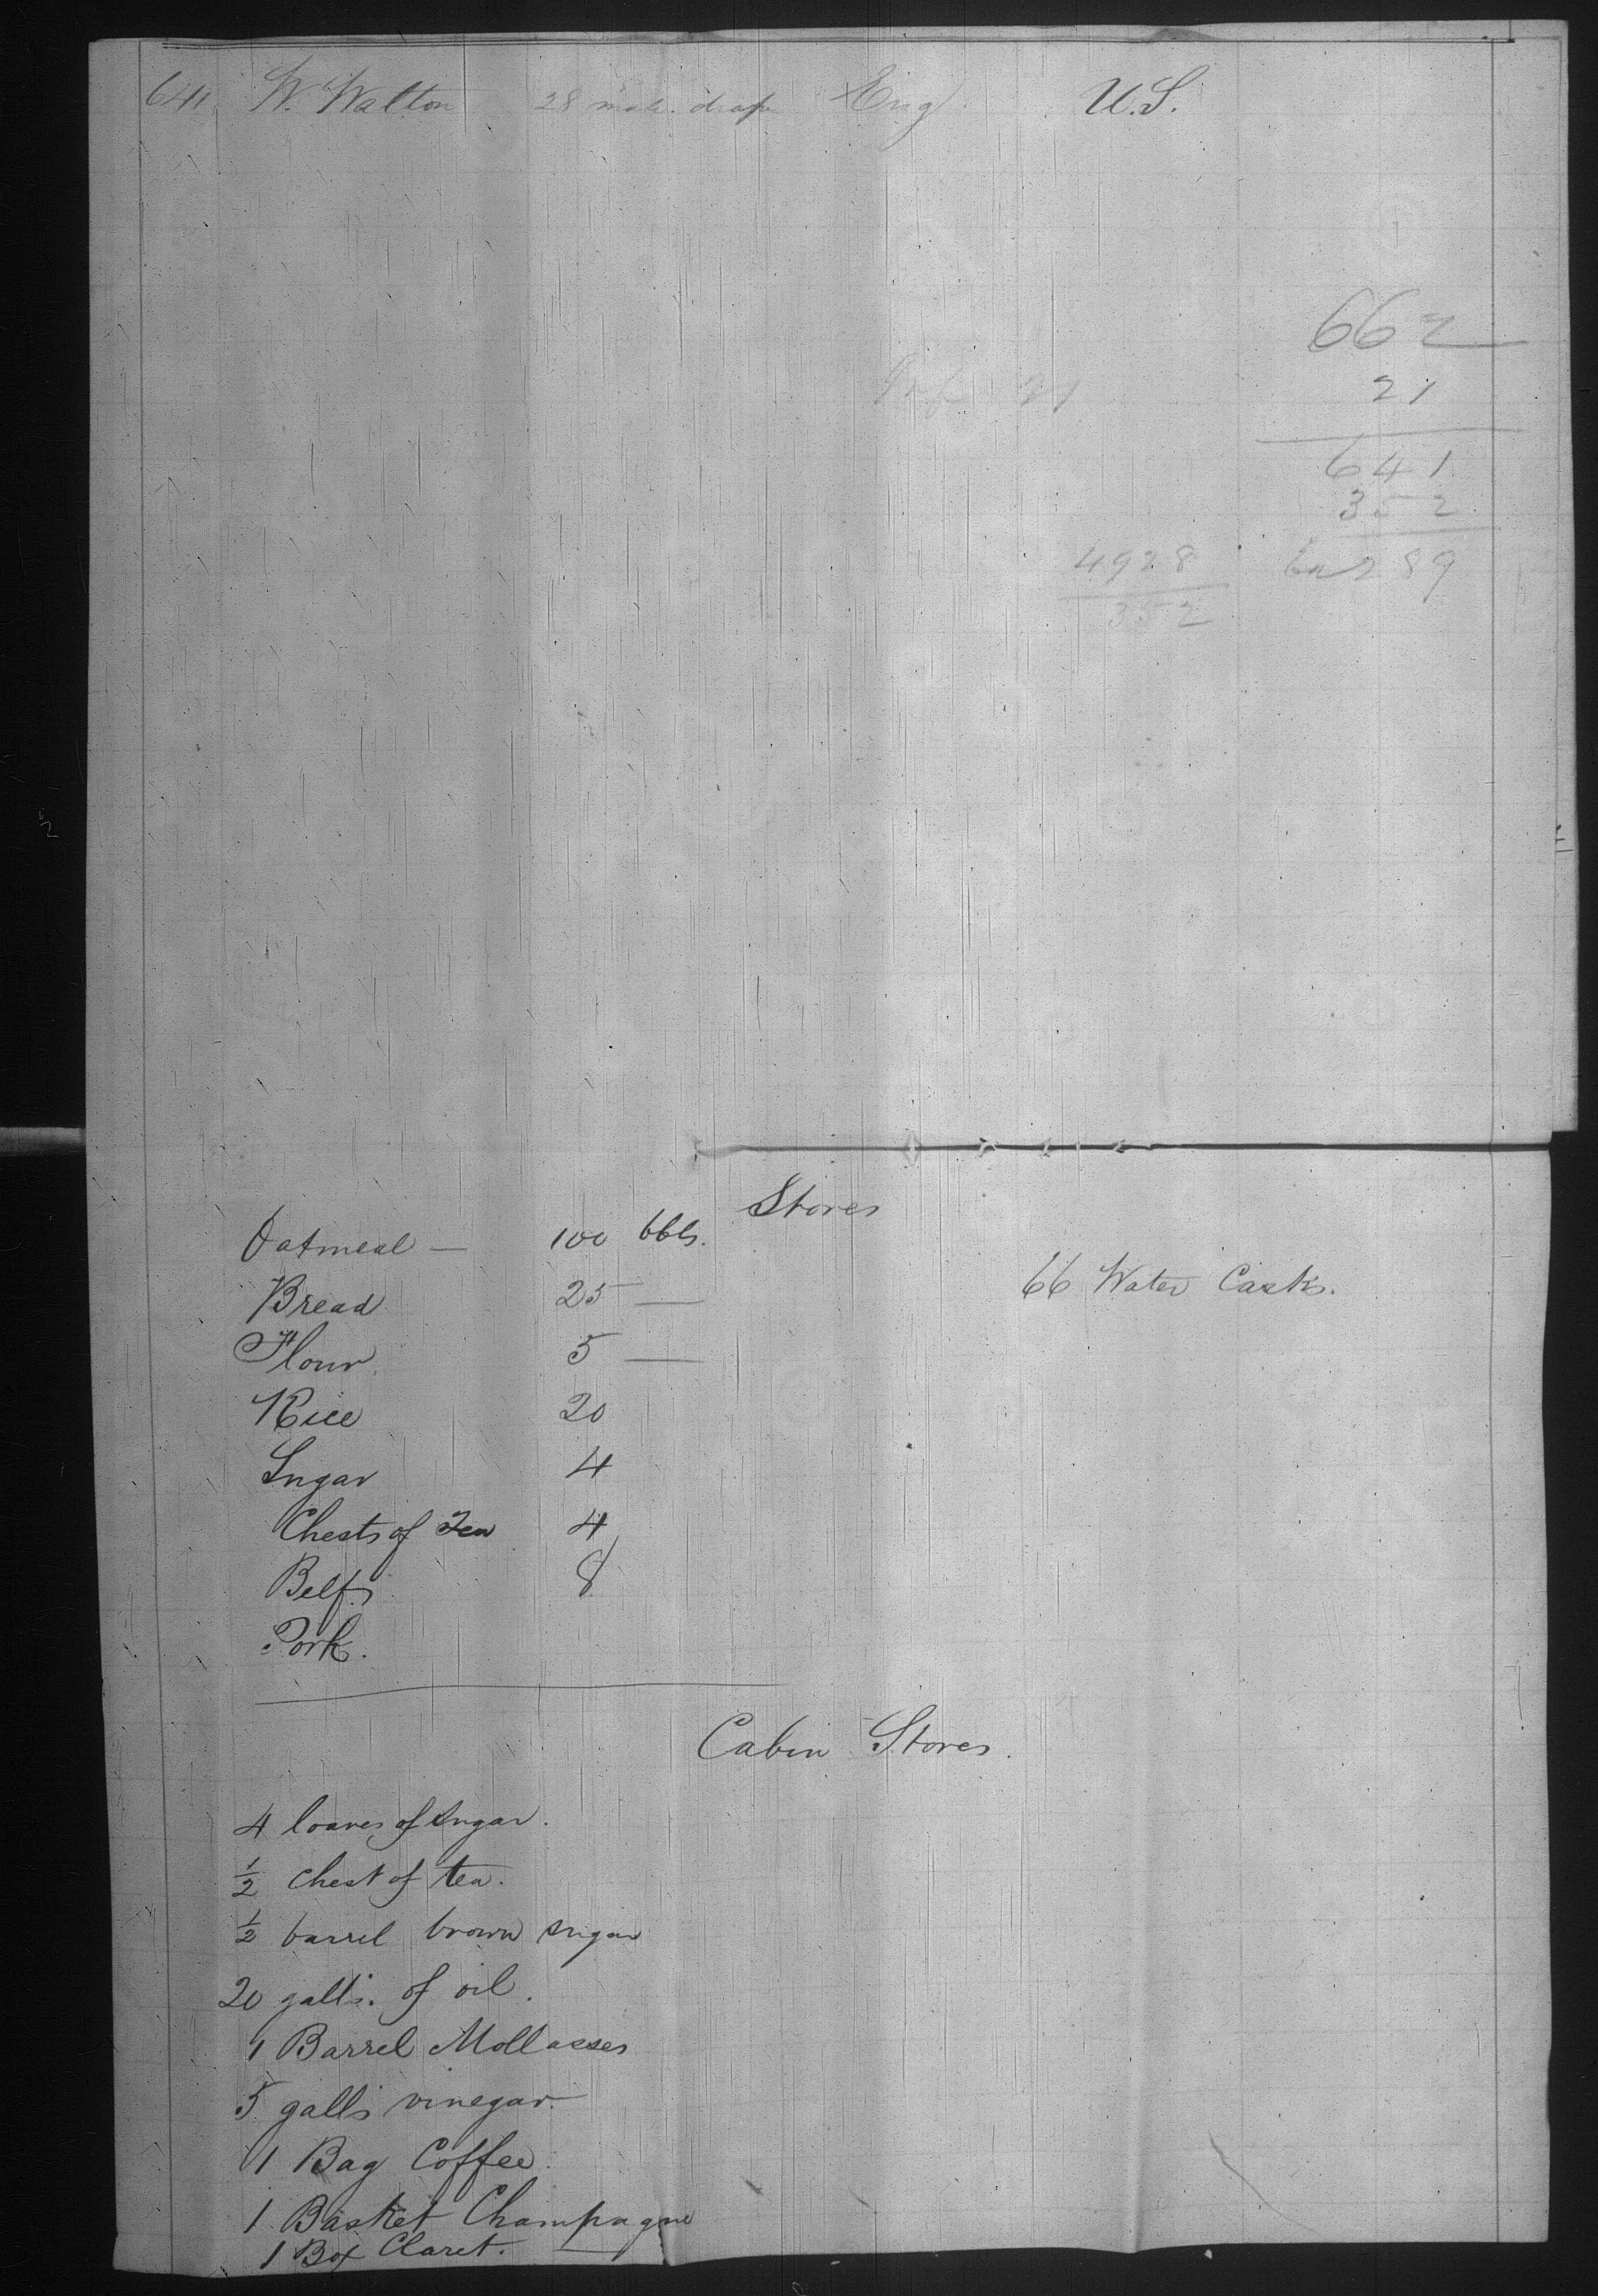 641 W. Walton 28 male drap Eng U.S.
662
21
21
641
352
4928 289
352
Stores
Oatmeal — 100 bbls.
66 Water Casks.
Bread 25 —
Flour 5 —
Rice 20
Sugar 4
Chests of Tea 4
Belf 8
Pork.
Cabin Stores.
4 loaves of sugar.
1/2 chest of tea.
1/2 barrel brown sugar
20 galls. of oil.
1 Barrel Mollasses
5 galls vinegar.
1 Bag Coffee.
1 Basket Champagne
1 Box Claret. —